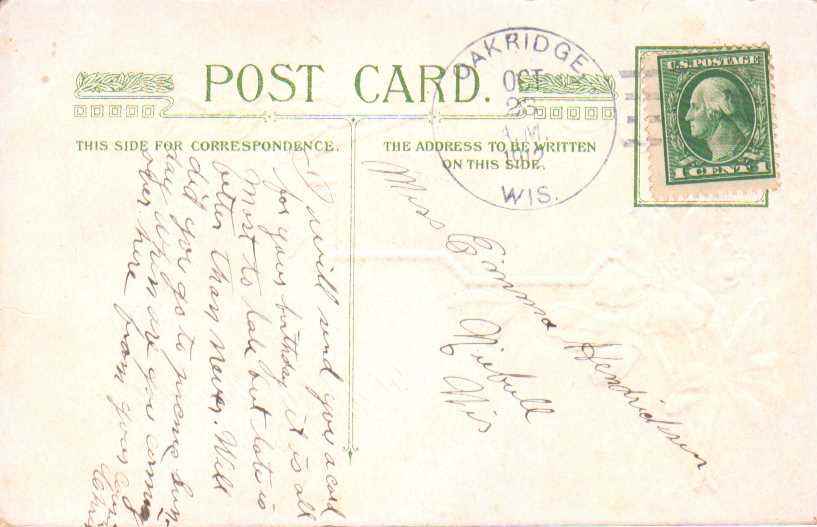 POST CARD.
THIS SIDE FOR CORRESPONDENCE.
THE ADDRESS TO BE WRITTEN
ON THIS SIDE.
OAKRIDGE,
OCT
26
A.M.
WIS.
U.S. POSTAGE
1 CENT 1
I will send you a card
for your birthday it is all
most to late but late is
better than never. Well
did you go to
day when are you coming
over here from your
Miss Emma Hendricksen
Wis